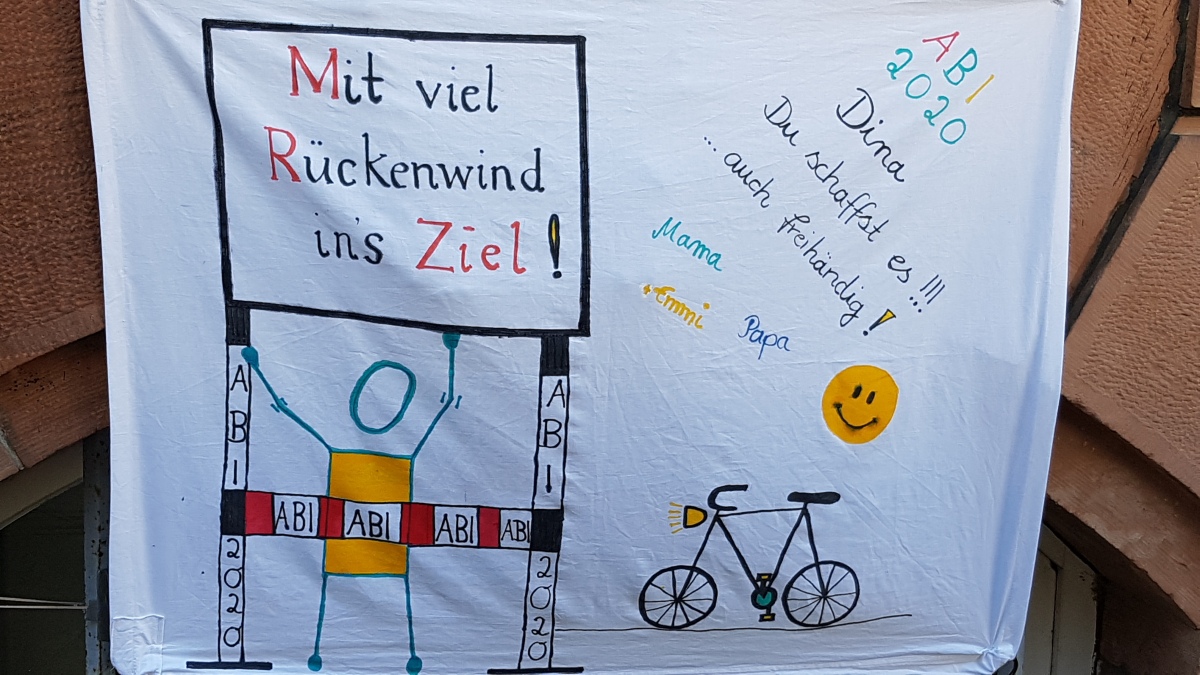 Mit viel
Rückenwind
in's Ziel!
ABI
2020
Dina
Du schaffst es!!!
...auch freihändig...!
Mama
+Emmi
Papa
ABI
ABI
ABI ABI ABI ABI
2020
2020